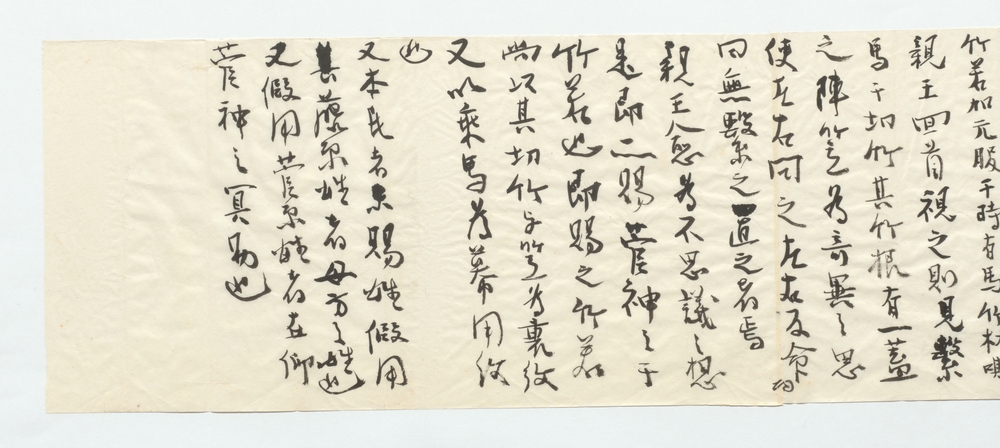 竹若加元服于時有馬竹林
親王回首視之則見繋
馬于切竹其竹根有一蓋
之陣笠為奇異之思
使左右問之左右反命
曰無繋之直之者焉
親王愈為不思議之想
是即二賜菅神之于
竹若也即賜之竹若
以其切竹与笠為裏紋
又以乗馬為幕用紋
也
又本氏者系賜姓假用
藤原姓者母方之姓也
又假用菅原姓者在仰
菅神之冥助也